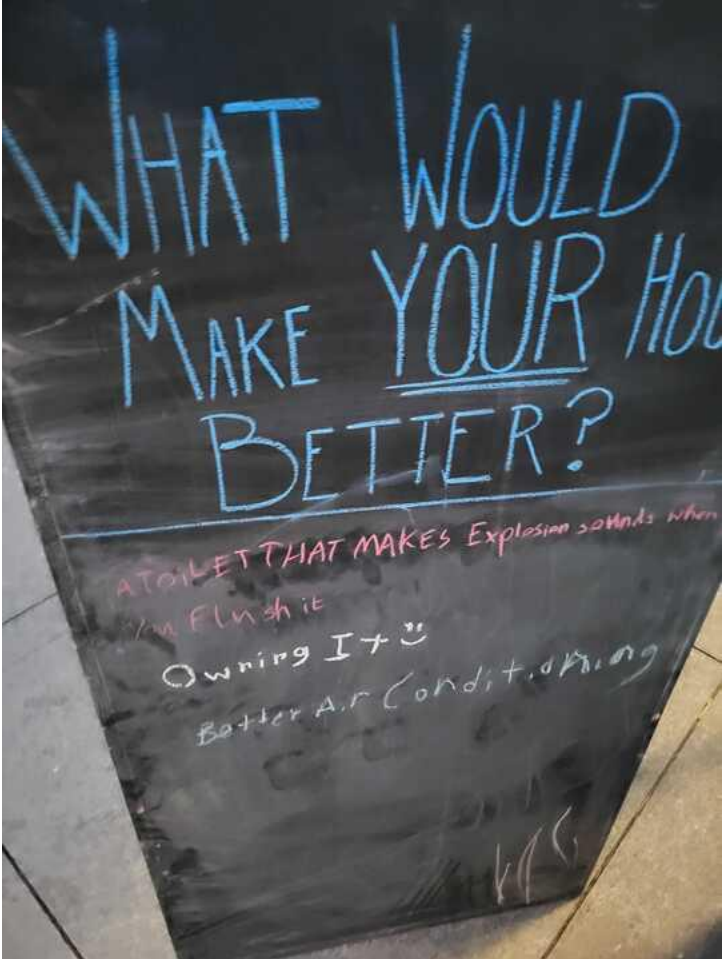 WHAT WOULD
MAKE YOUR HOU
BETTER?
A TOiLET THAT MAKES Explosion sounds when
you Flush it
Owning It
Better Air Conditioning